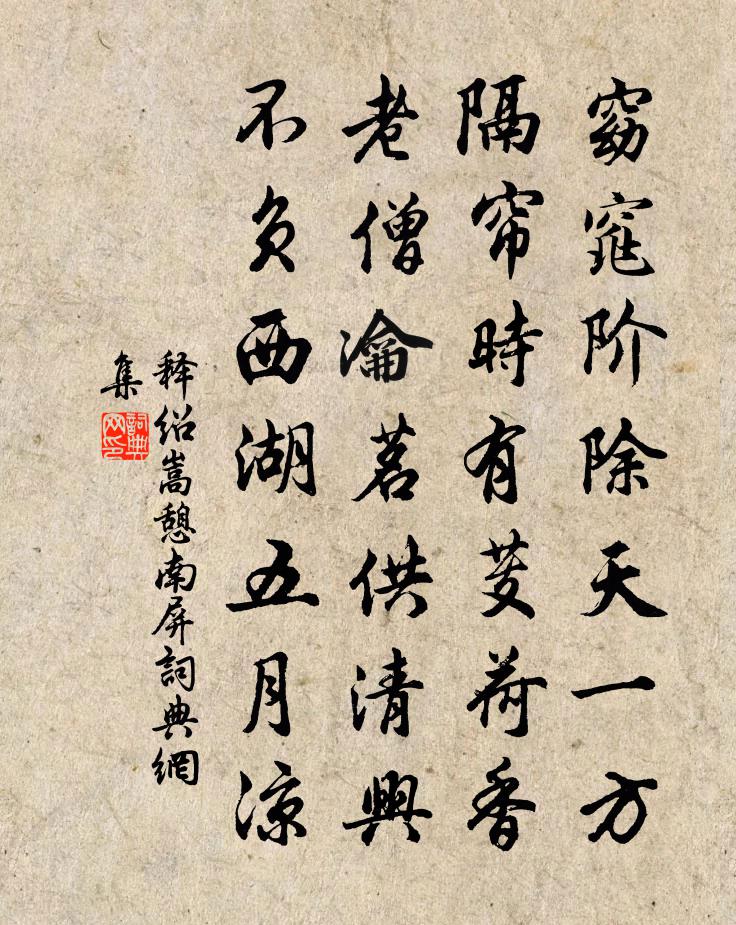 窈窕阶除天一方
隔帘時有芰荷香
老僧瀹茗供清興
不负西湖五月凉
释绍嵩憩南屏詞典網
集
詞典网印